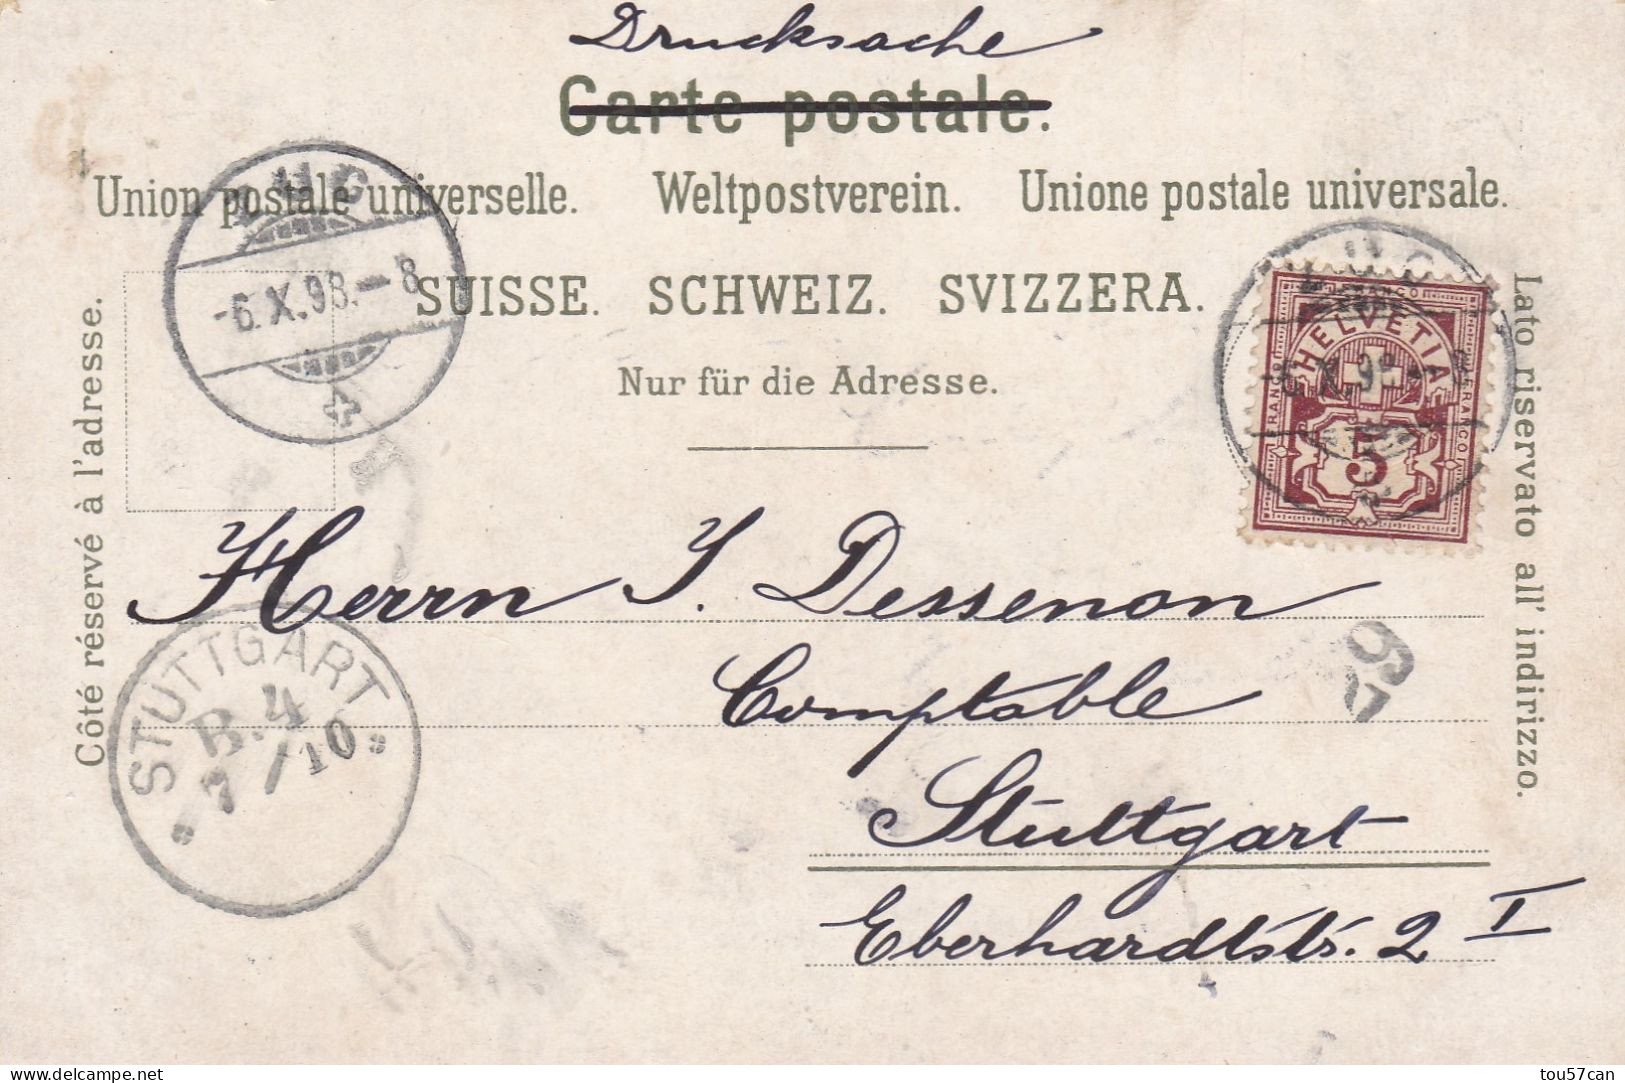 Drucksache
Carte postale.
Union postale universelle. Weltpostverein. Unione postale universale.
ZUG
-6.X.98.-8
SUISSE. SCHWEIZ. SVIZZERA.
Nur für die Adresse.
Côté réservé à l'adresse.
Lato riservato all' indirizzo.
FRANCO
HELVETIA
FRANCO
5
Herrn J. Dessenon
Comptable
Stuttgart
Eberhardtstr. 2 I
STUTTGART
B.4
7/10
97
delcampe.net
tou57can